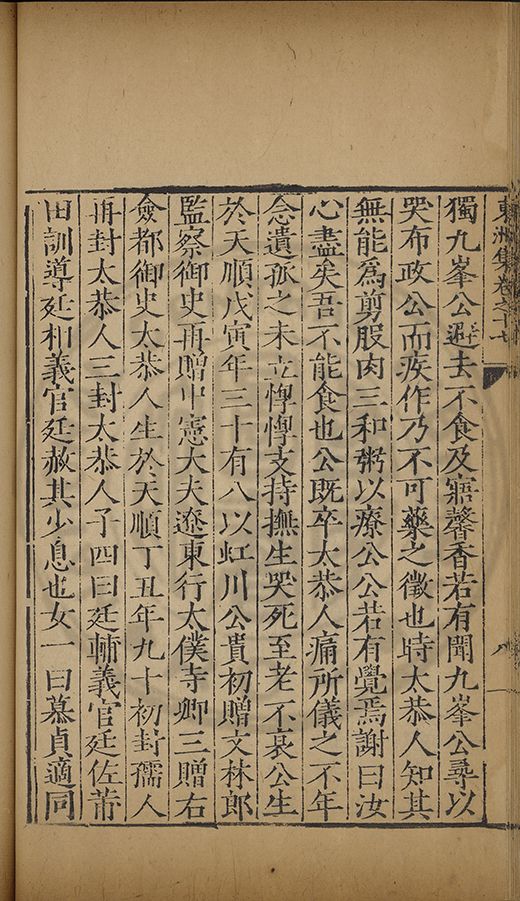 東洲集卷之十七
獨九峯公避去不食及寤馨香若有聞九峯公尋以
哭布政公而疾作乃不可藥之徵也時太恭人知其
無能爲剪股肉三和粥以療公公若有覺焉謝曰汝
心盡矣吾不能食也公既卒太恭人痛所儀之不年
念遺孤之未立惸惸支持撫生哭死至老不衰公生
於天順戊寅年三十有八以虹川公貴初贈文林郎
監察御史再贈中憲大夫遼東行太僕寺卿三贈右
僉都御史太恭人生於天順丁丑年九十初封孺人
再封太恭人三封太恭人子四曰廷輔義官廷佐莆
田訓導廷相義官廷赦其少息也女一曰慕貞適同